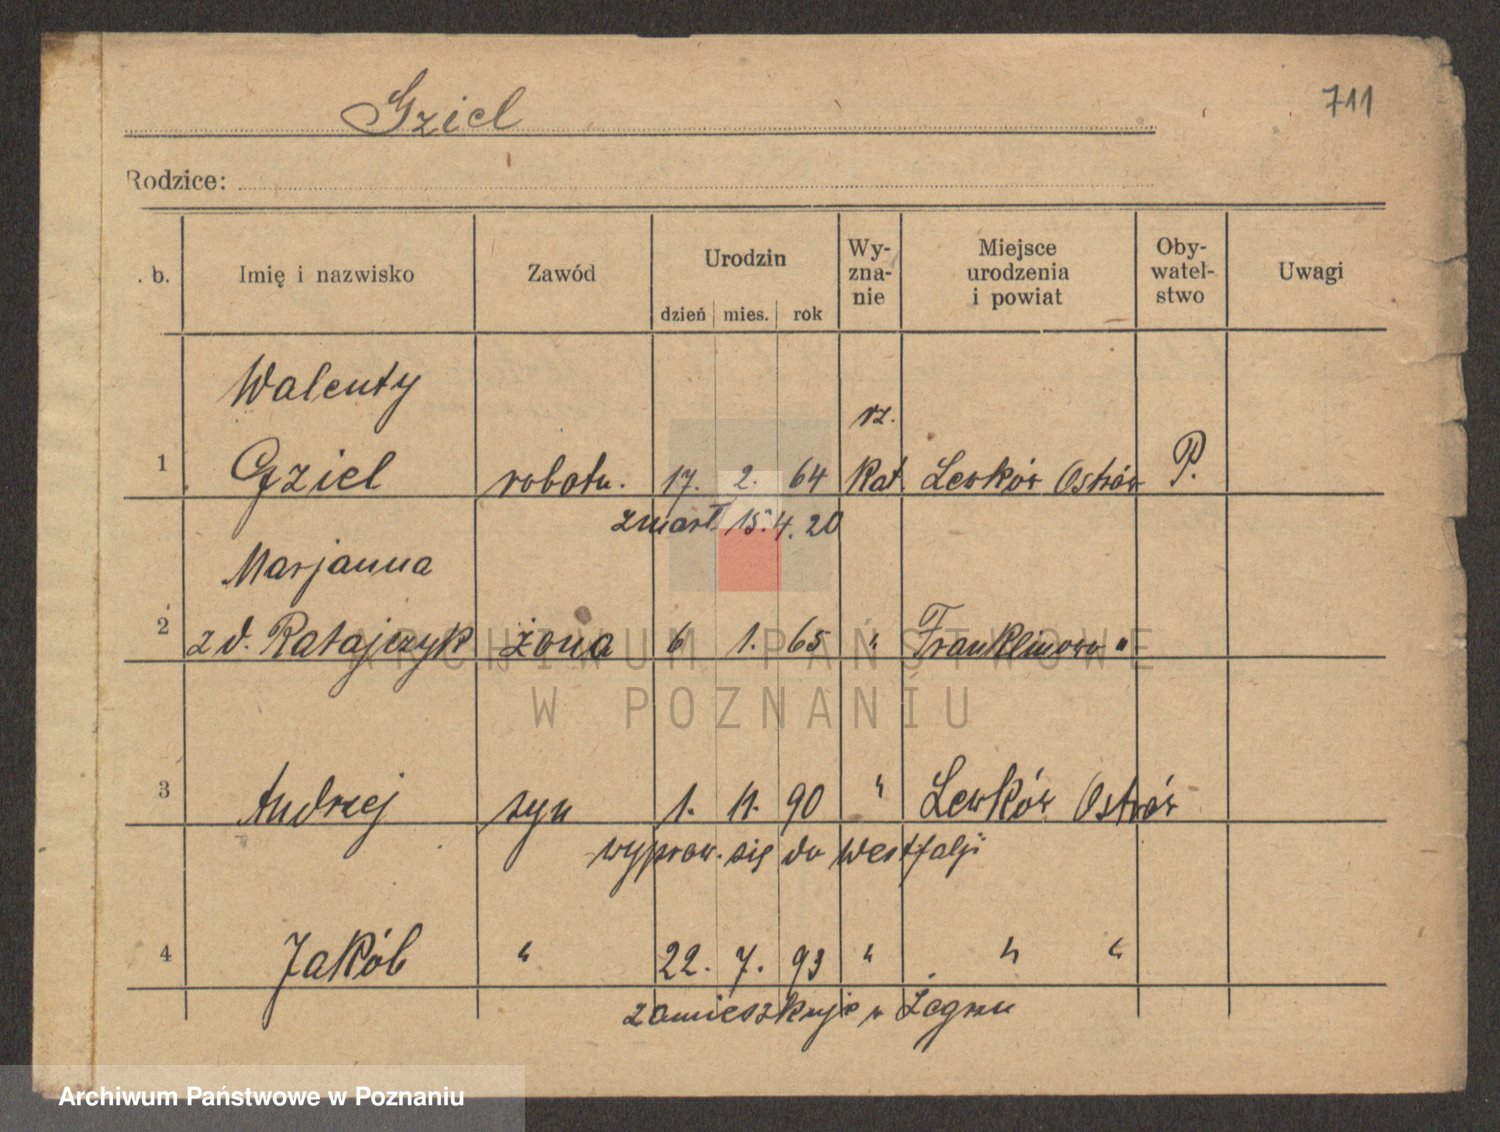 Gziel
711
Rodzice:
. b. Imię i nazwisko Zawód Urodzin dzień mies. rok Wy-zna-nie Miejsce urodzenia i powiat Oby-watel-stwo Uwagi
Walenty
rz.
1 Gziel robotn. 17. 2. 64 Kat. Lewków Ostrów P.
zmarł 15.4.20
Marjanna
2 z d. Ratajczyk żona 6 1. 65 " Franklinowo "
3 Andrzej syn 1. 11. 90 " Lewków Ostrów
wyprow. się do Westfalji
4 Jakób " 22. 7. 93 " " "
zamieszkuje w
ARCHIWUM PAŃSTWOWE
W POZNANIU
Archiwum Państwowe w Poznaniu